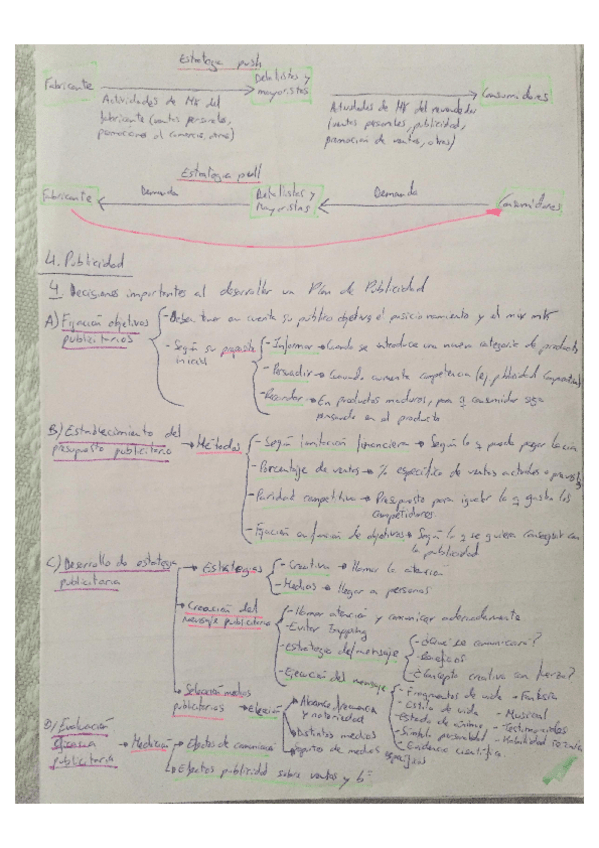 Estrategia push
Fabricante
Detallistas y
mayoristas
Consumidores
Actividades de MK del
fabricante (ventas personales,
promociones al comercio, otras)
Actividades de MK del revendedor
(ventas personales, publicidad,
promoción de ventas, otras)
Estrategia pull
Fabricante
Demanda
Detallistas y
Mayoristas
Demanda
Consumidores
4. Publicidad
4. Decisiones importantes al desarrollar un Plan de Publicidad
A) Fijación objetivos
publicitarios
- Deben tener en cuenta su público objetivo, el posicionamiento y el mix mk
- Según su propósito
- Informar → Cuando se introduce una nueva categoría de producto
- Persuadir → Cuando aumenta competencia (ej publicidad comparativa)
- Recordar → En productos maduros, para q consumidor siga
pensando en el producto
B) Establecimiento del
presupuesto publicitario → Métodos
- Según limitación financiera → Según lo q puede pagar la cía
- Porcentaje de ventas → % específico de ventas actuales o previstas
- Paridad competitiva → Presupuesto para igualar lo q gastan los
competidores
- Fijación en función de objetivos → Según lo q se quiera conseguir con
la publicidad
C) Desarrollo de estrategia
publicitaria
→ Estrategias
- Creativa → llamar la atención
- Medios → llegar a personas
→ Creación del
mensaje publicitario
- llamar atención y comunicar adecuadamente
- Evitar Zapping
- Estrategia del mensaje
- ¿Qué se comunicará?
- Beneficios
- ¿Concepto creativo con fuerza?
- Ejecución del mensaje
- Fragmentos de vida
- Fantasía
- Estilo de vida
- Musical
- Estado de ánimo
- Testimonios
- Símbolo personalidad
- Habilidad técnica
- Evidencia científica
→ Selección medios
publicitarios → Elección
→ Alcance, frecuencia
y notoriedad
→ Distintos medios
→ Soportes de medios específicos
D) Evaluación
eficacia
publicitaria
→ Medición
→ Efectos de comunicación
→ Efectos publicidad sobre ventas y bº